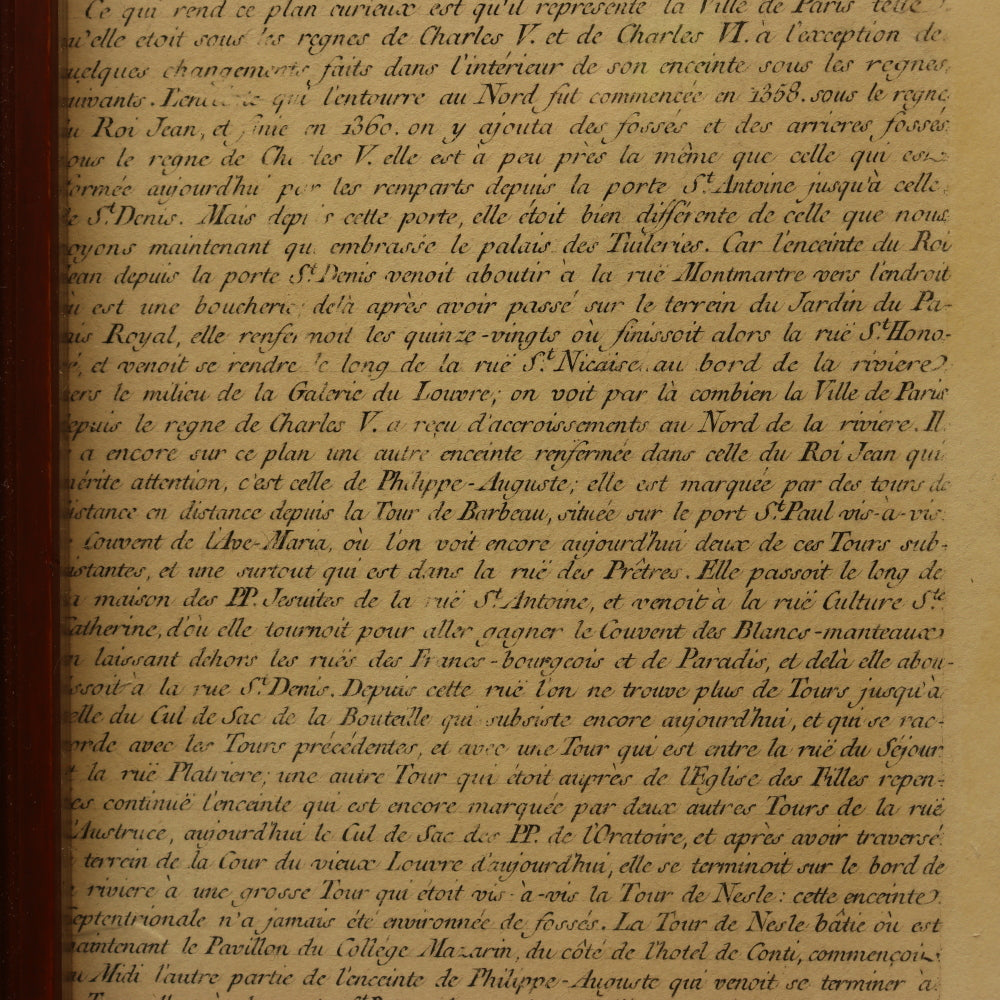 Ce qui rend ce plan curieux est qu'il représente la Ville de Paris telle
qu'elle etoit sous les regnes de Charles V. et de Charles VI. à l'exception de
quelques changements faits dans l'intérieur de son enceinte sous les regnes
suivants. L'enceinte qui l'entourre au Nord fut commencée en 1358. sous le regne
du Roi Jean, et finie en 1360. on y ajouta des fossés et des arrieres fossés
sous le regne de Charles V. elle est à peu près la même que celle qui est
formée aujourd'hui par les remparts depuis la porte St. Antoine jusqu'à celle
de St. Denis. Mais depuis cette porte, elle étoit bien différente de celle que nous
voyons maintenant qui embrasse le palais des Tuileries. Car l'enceinte du Roi
Jean depuis la porte St. Denis venoit aboutir à la ruë Montmartre vers l'endroit
où est une boucherie; delà après avoir passé sur le terrein du Jardin du Pa-
lais Royal, elle renfermoit les quinze-vingts où finissoit alors la ruë St. Hono-
ré, et venoit se rendre le long de la ruë St. Nicaise au bord de la riviere
vers le milieu de la Galerie du Louvre; on voit par là combien la Ville de Paris
depuis le regne de Charles V. a reçu d'accroissements au Nord de la riviere. Il
y a encore sur ce plan une autre enceinte renfermée dans celle du Roi Jean qui
mérite attention, c'est celle de Philippe-Auguste; elle est marquée par des tours de
distance en distance depuis la Tour de Barbeau, située sur le port St. Paul vis-à-vis
le Couvent de l'Ave-Maria, où l'on voit encore aujourd'hui deux de ces Tours sub-
sistantes, et une surtout qui est dans la ruë des Prêtres. Elle passoit le long de
la maison des PP. Jesuites de la ruë St. Antoine, et venoit à la ruë Culture Ste.
Catherine, d'où elle tournoit pour aller gagner le Couvent des Blancs-manteaux
en laissant dehors les ruës des Francs-bourgeois et de Paradis, et delà elle abou-
tissoit à la rue St. Denis. Depuis cette ruë l'on ne trouve plus de Tours jusqu'à
celle du Cul de Sac de la Bouteille qui subsiste encore aujourd'hui, et qui se rac-
corde avec les Tours précédentes, et avec une Tour qui est entre la ruë du Séjour
et la ruë Platriere; une autre Tour qui étoit auprès de l'Eglise des Filles repen-
ties continuë l'enceinte qui est encore marquée par deux autres Tours de la ruë
d'Austruce, aujourd'hui le Cul de Sac des PP. de l'Oratoire, et après avoir traversé
le terrein de la Cour du vieux Louvre d'aujourd'hui, elle se terminoit sur le bord de
la riviere à une grosse Tour qui étoit vis-à-vis la Tour de Nesle : cette enceinte
Septentrionale n'a jamais été environnée de fossés. La Tour de Nesle bâtie où est
maintenant le Pavillon du Collége Mazarin, du côté de l'hotel de Conti, commençoit
au Midi l'autre partie de l'enceinte de Philippe-Auguste qui venoit se terminer à